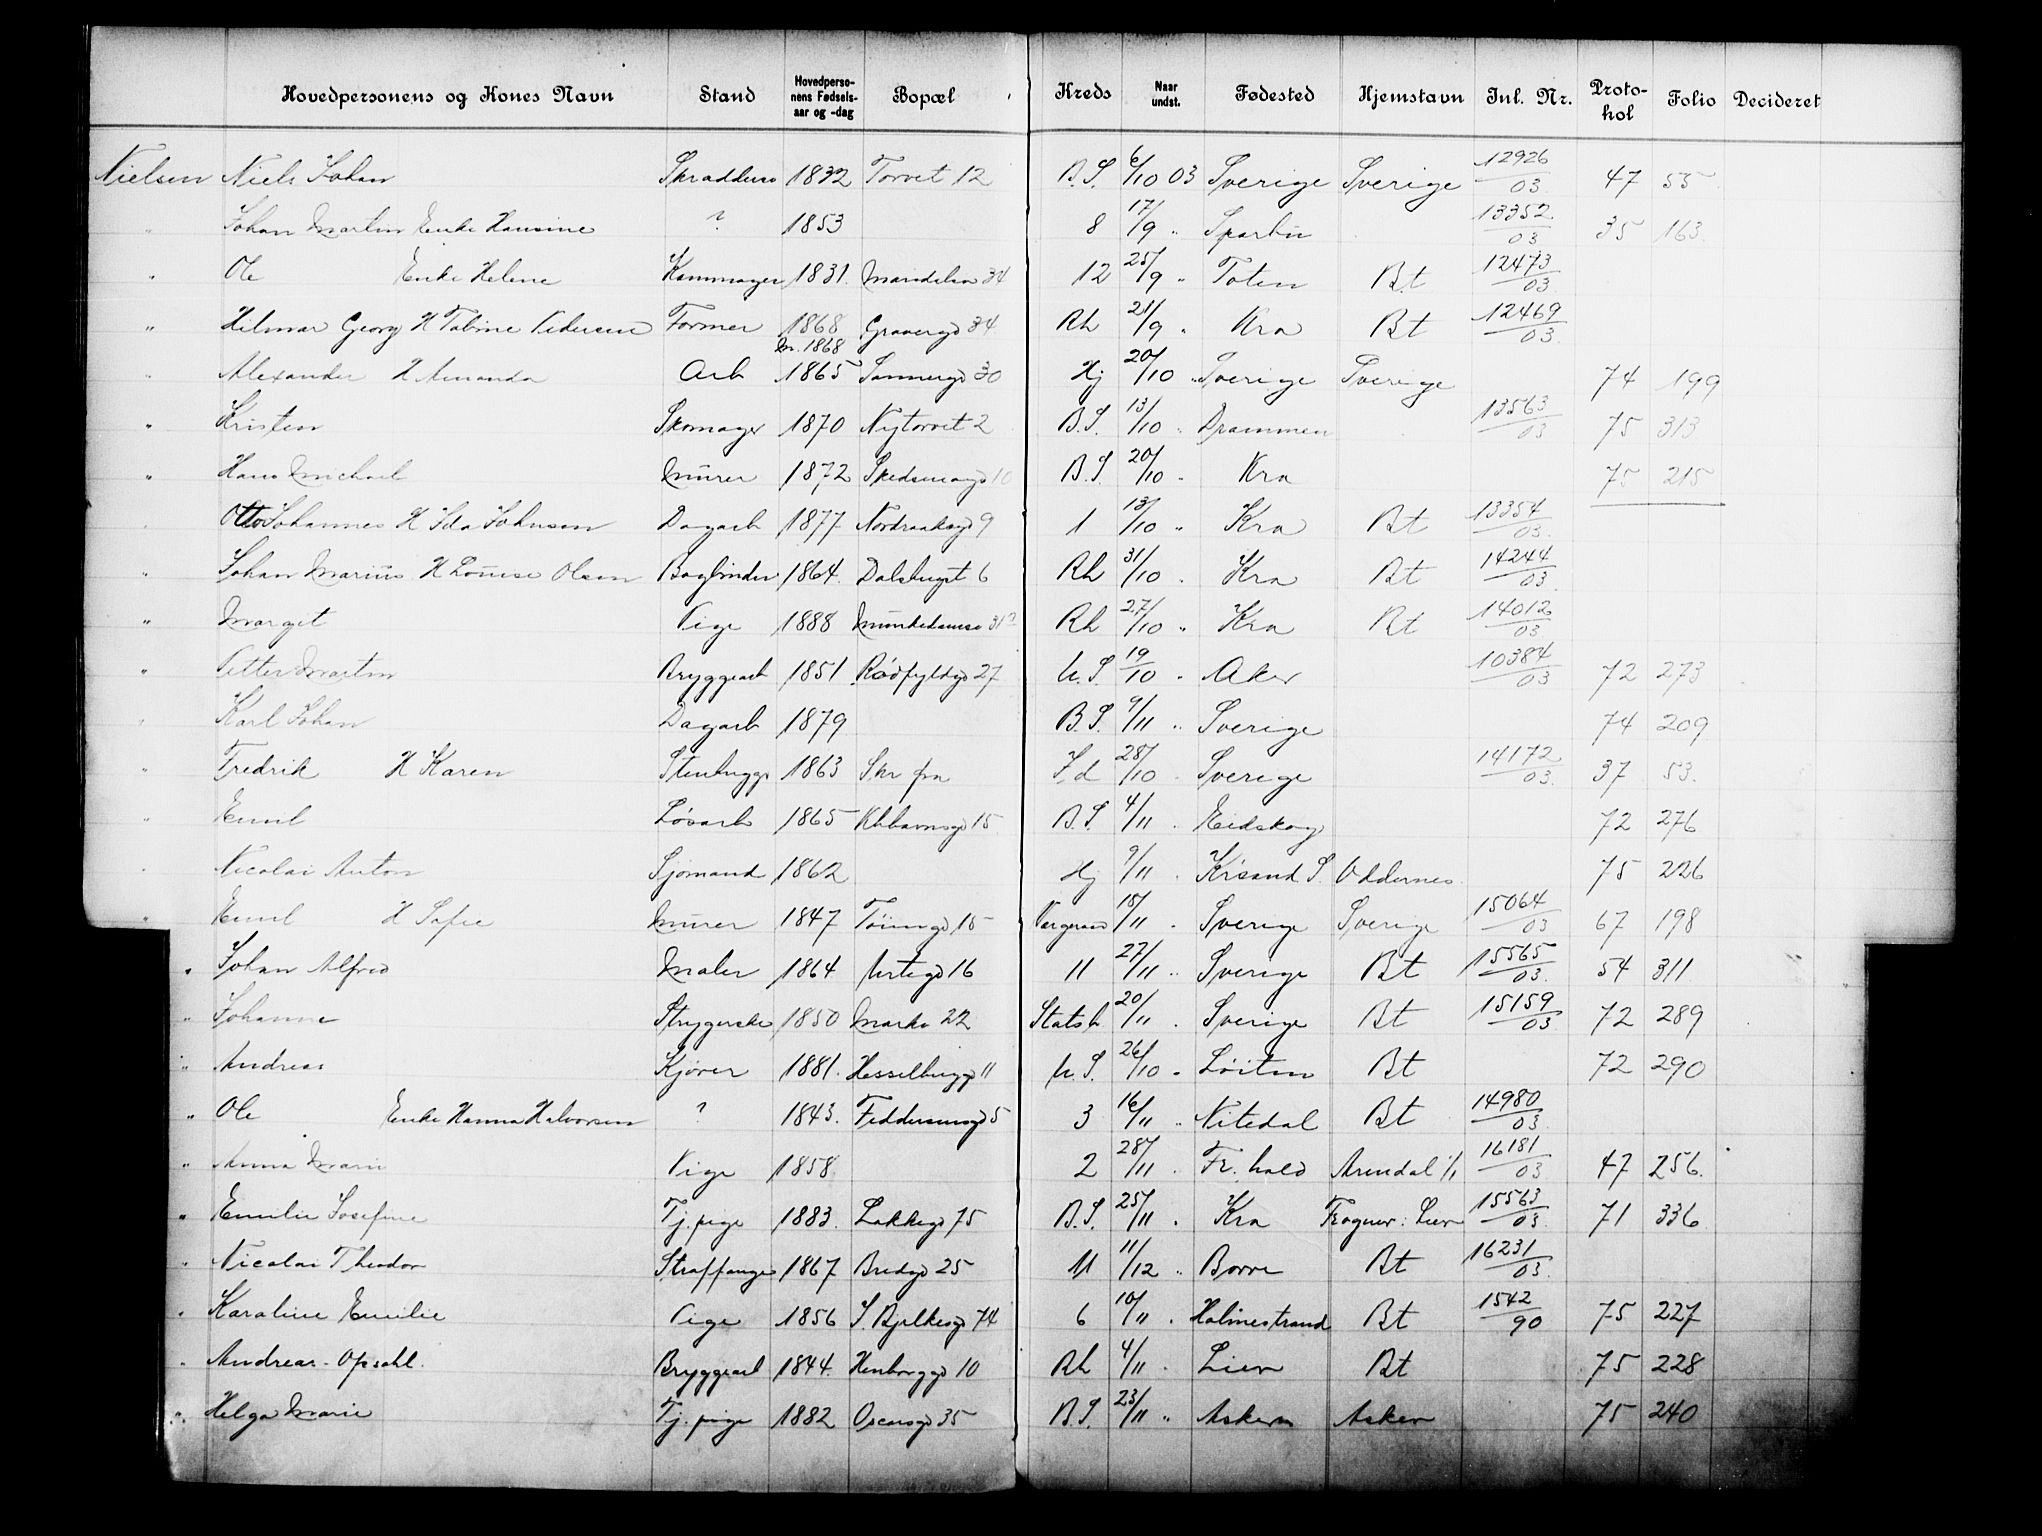 Hovedpersonens og Kones Navn Stand Hovedpersonens Fødselsaar og -dag Bopæl Kreds Naar undst. Fødested Hjemstavn Inl. Nr. Protokol Folio Decideret
Nielsen Niels Johan 1832 Torvet 12 B.S. 6/10 03 Sverige Sverige 12926/03 47 55
" Johan Martin Enke Hansine ? 1853 8 17/9 " Sparbu 13352/03 35 163
" Ole Enke Helene Kammager 1831. 34 12 25/9 " Toten Bt 12473/03
" Hilmar Georg H Tobine Pedersen Former 1868 m. 1868 Gravergd 34 Rh 21/9 " Kra Bt 12469/03
" Alexander H Amanda Arb 1865 Sannergd 30 Hj 20/10 " Sverige Sverige 74 199
" Kristen Skomager 1870 Nytorvet 2 B.S. 13/10 " Drammen 13563/03 75 313
" Hans Michael Murer 1872 Skedsmogd 10 B.S. 20/10 " Kra 75 215
" Otto Johannes H Ida Johnsen Dagarb 1877 Nordraaksgd 9 1 13/10 " Kra Bt 13354/03
" Johan Marius H Louise Olsen Bogbinder 1864. Dalsbergst 6 Rh 31/10 " Kra Bt 14244/03
" Margit Pige 1888 Rh 27/10 " Kra Bt 14012/03
" Petter Martin Bryggearb 1851 Rødfyldgd 27 U.S. 19/10 " Aker 10384/03 72 273
" Karl Johan Dagarb 1879 B.S. 9/11 " Sverige 74 209
" Fredrik H Karen Stenhugger 1863 Skr fra Id 28/10 " Sverige 14172/03 37 53.
" Emil Løsarb 1865 Khhavnsgd 15 B.S. 4/11 " Eidskog 72 276
" Nicolai Anton Sjømand 1862 Hj 9/11 " Krsand S. Oddernes 75 226
" Emil H Sofie Murer 1847 Tøiengd 15 Vergeraad 18/11 " Sverige Sverige 15064/03 67 198
" Johan Alfred Maler 1864 Urtegd 16 11 27/11 " Sverige Bt 15565/03 54 311
" Johanne Strygerske 1850 Markv 22 Statsb 20/11 " Sverige Bt 15159/03 72 289
" Andreas Kjører 1881. Hesselbergg 11 U.S. 26/10 " Løiten Bt 72 290
" Ole Enke Hanna Halvorsen ? 1843. Feddersensgd 5 3 16/11 " Nitedal Bt 14980/03
" Anna Marie Pige 1858 2 28/11 " Fr.hald Arendal 1/1 16181/03 47 256.
" Emilie Josefine Tj.pige 1883. Lakkegd 75 B.S. 25/11 " Kra Frogner i Lier 15563/03 71 336
" Nicolai Theodor Straffange 1867 Bredgd 25 11 11/12 " Borre Bt 16231/03
" Karoline Emilie Pige 1856 J. Bjelkesgd 74 6 10/11 " Holmestrand Bt 1542/90 75 227
" Andreas - Opsahl. Bryggearb 1844. 10 Rh 4/11 " Lier Bt 75 228
" Helga Marie Tj.pige 1882 Oscarsgd 35 B.S. 23/11 " Askern Asker 75 240